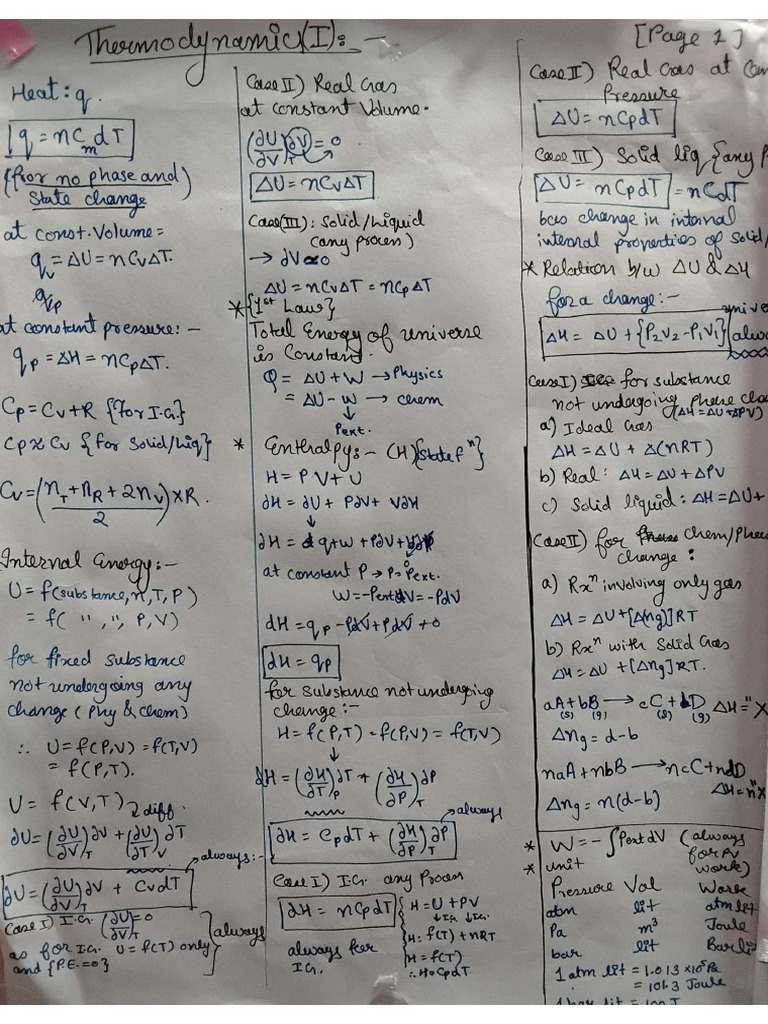 Thermodynamic(I):-
[Page 1]
Heat: q.
q = nCm dT
{for no phase and
State change}
at const. Volume =
qv = ΔU = nCvΔT.
qp
at constant pressure:-
qp = ΔH = nCpΔT.
Cp = Cv + R {for I.G}
Cp ≈ Cv {for Solid/liq}
Cv = (nT + nR + 2nv / 2) × R.
Internal Energy:-
U = f(substance, n, T, P)
= f( " , ", P, V)
for fixed substance
not undergoing any
change (Phy & Chem)
∴ U = f(P,V) = f(T,V)
= f(P,T).
U = f(V,T) diff.
∂U = (∂U/∂V)T ∂V + (∂U/∂T)V ∂T
always:-
∂U = (∂U/∂V)T ∂V + CvdT
Case I) I.G. (∂U/∂V)T = 0
as for I.G. U = f(T) only
and {P.E. = 0}
always
Case II) Real Gas
at constant Volume.
(∂U/∂V)T ∂V = 0
ΔU = nCvΔT
Case(III): Solid/Liquid
(any process)
→ ∂V ≈ 0
ΔU = nCvΔT = nCpΔT
* {1st Law}
Total Energy of universe
is Constant.
Q = ΔU + W → Physics
= ΔU - W → chem
Pext.
* Enthalpy:- (H) {state fn}
H = PV + U
∂H = ∂U + P∂V + V∂H
∂H = q + W + P∂V + V∂P
0
at constant P → P = Pext.
W = -Pext dV = -PdV
dH = qp - PdV + PdV + 0
dH = qp
for substance not undergoing
change:-
H = f(P,T) = f(P,V) = f(T,V)
∂H = (∂H/∂T)P ∂T + (∂H/∂P)T ∂P
always
∂H = CpdT + (∂H/∂P)T ∂P
Case I) I.G. any Process
∂H = nCpdT
always for
I.G.
H = U + PV
↓I.G. ↓I.G.
H = f(T) + nRT
H = f(T)
∴ H = CpdT
Case II) Real Gas at Con
Pressure
ΔU = nCpdT
Case III) Solid liq {any P
ΔU = nCpdT = nCdT
bcus change in internal
internal properties of Solid/
* Relation b/w ΔU & ΔH
for a change:-
univer
ΔH = ΔU + {P2V2 - P1V1} (alwa
Case I) for substance
not undergoing phase cha
(ΔH = ΔU + ΔPV)
a) Ideal Gas
ΔH = ΔU + Δ(nRT)
b) Real: ΔH = ΔU + ΔPV
c) Solid liquid: ΔH = ΔU +
Case II) for chem/Phas
change:
a) Rxn involving only gas
ΔH = ΔU + [Δ(ng)]RT
b) Rxn with Solid Gas
ΔH = ΔU + [Δng]RT.
aA + bB → cC + dD ΔH = " X
(s) (g) (s) (g)
Δng = d-b
naA + nbB → ncC + ndD
ΔH = n" X
Δng = n(d-b)
* W = -∫Pext dV (always
for PV
work)
* unit
Pressure Vol Work
atm lit atm lit
Pa m³ Joule
bar lit Bar lit
1 atm lit = 1.013 × 10⁵ Pa
= 101.3 Joule
1 bar lit = 100 J